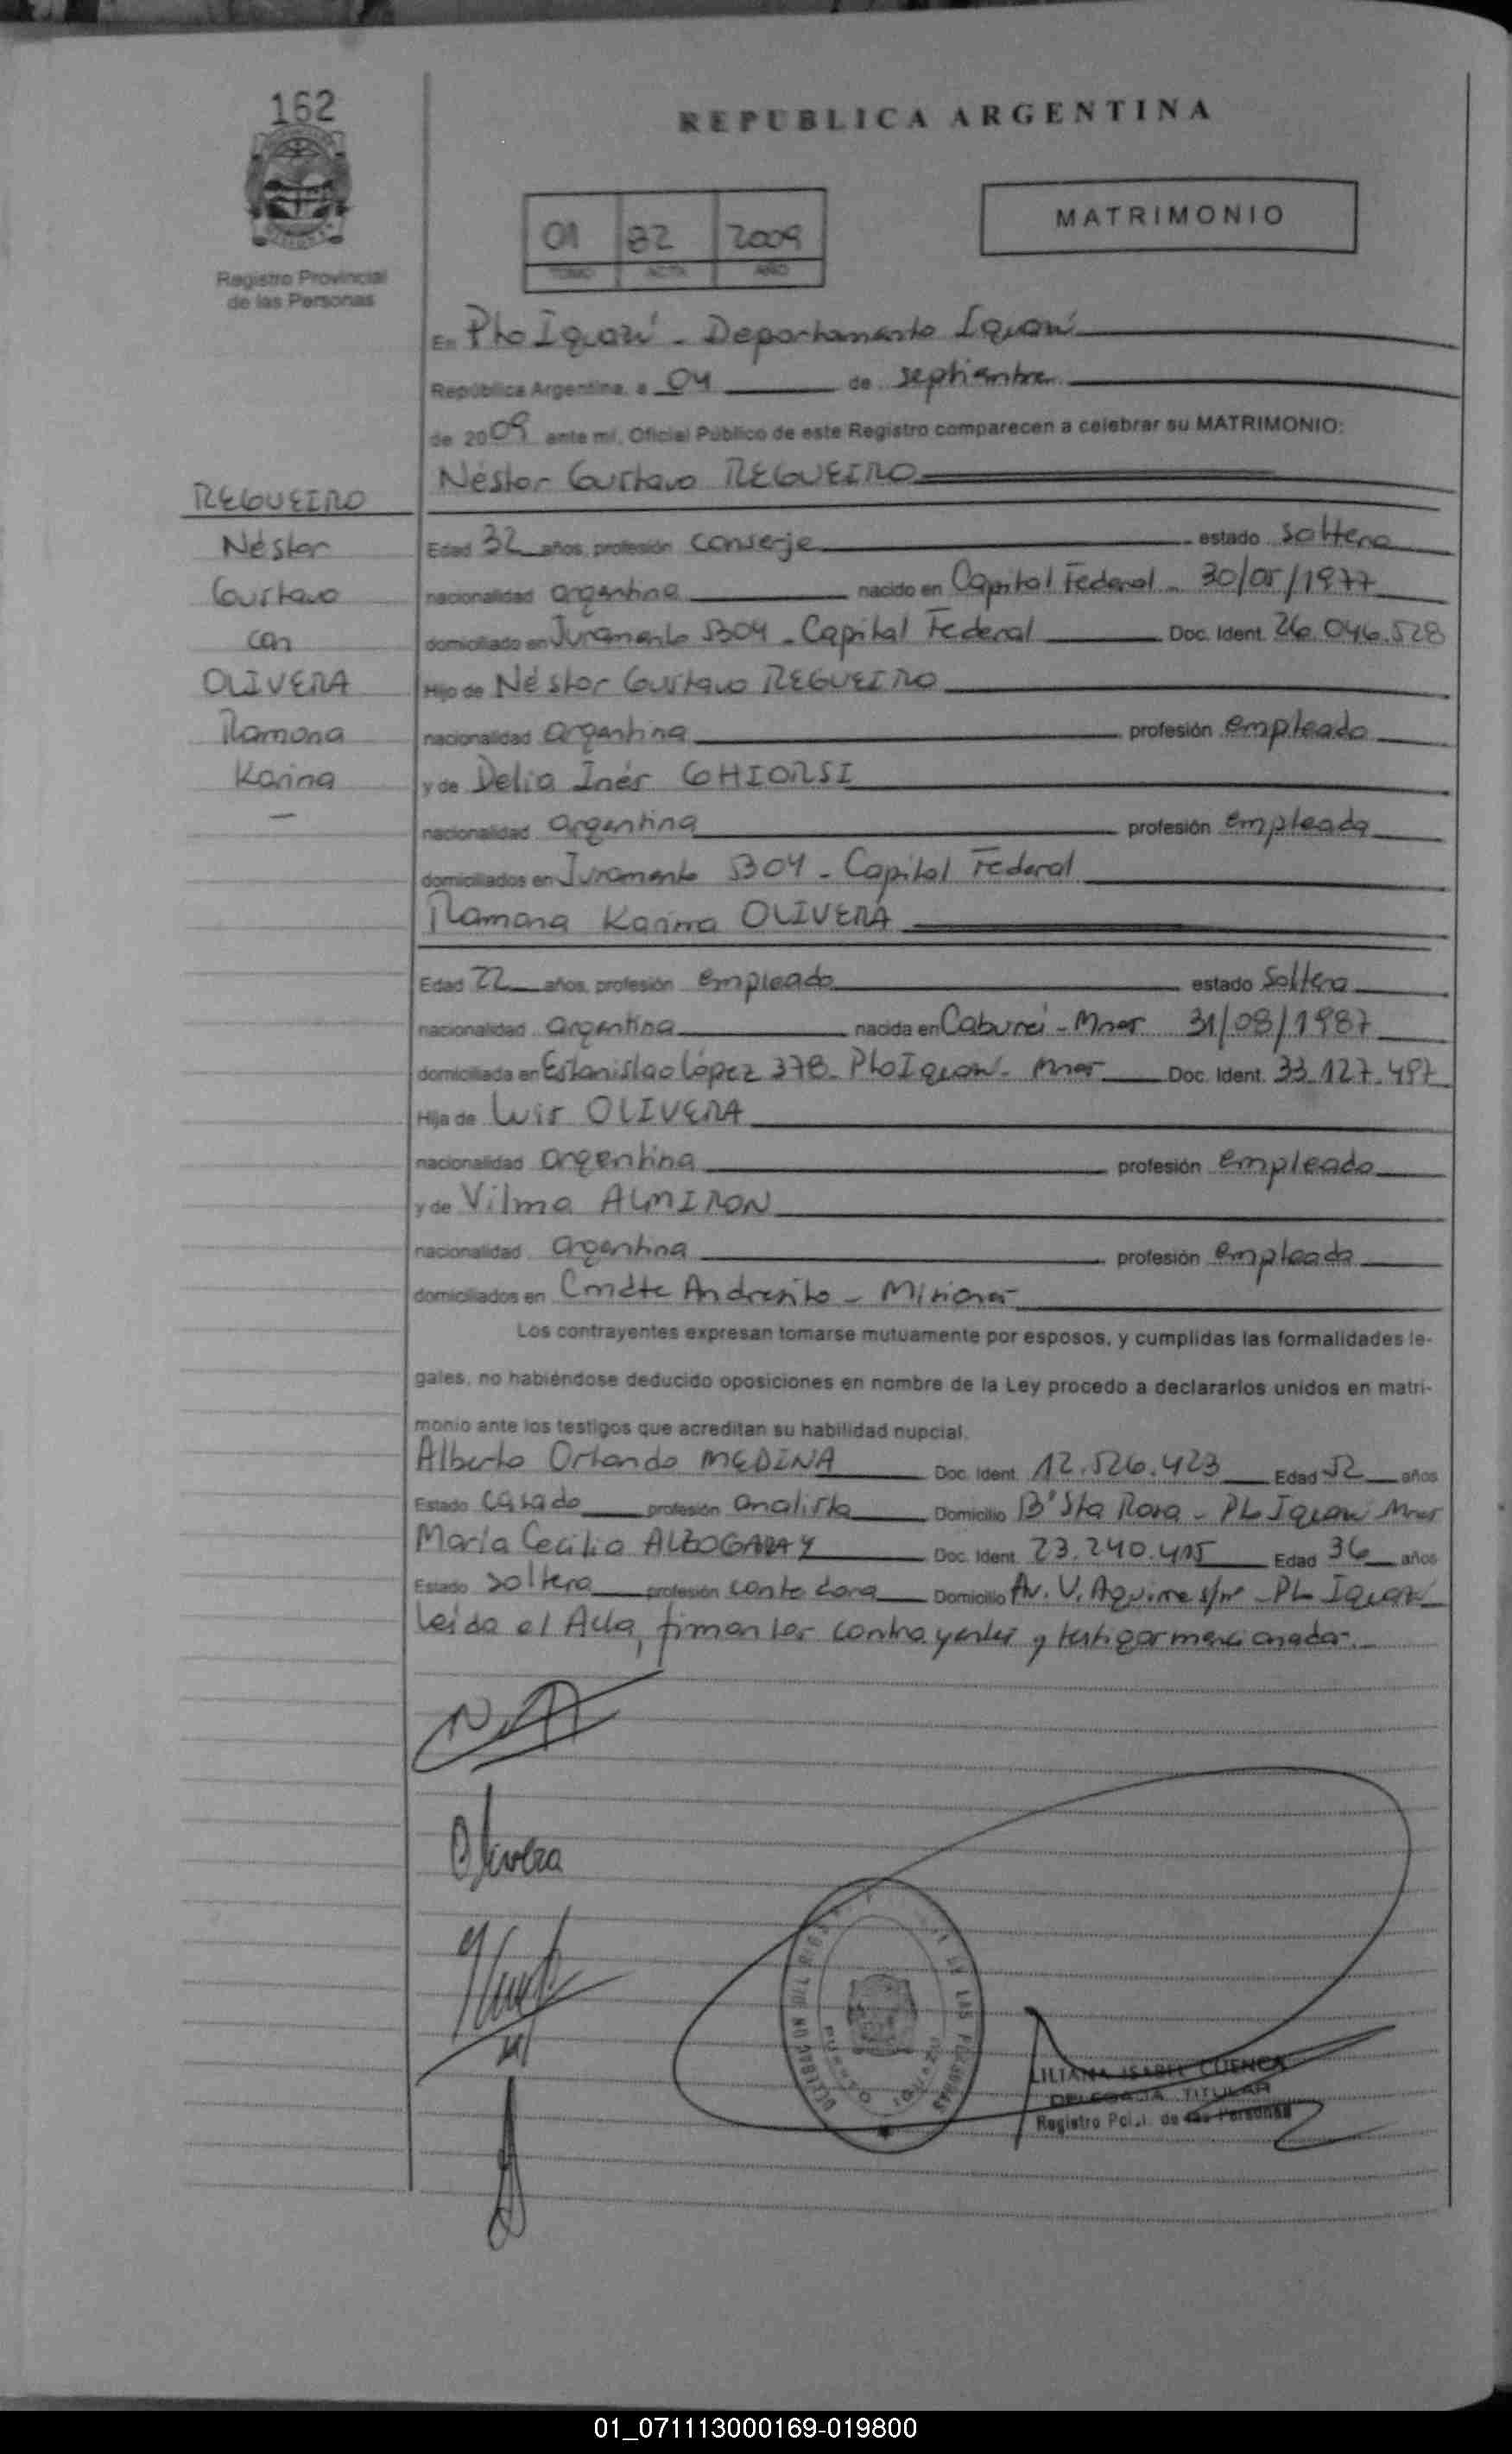 162
REPUBLICA ARGENTINA
MATRIMONIO
01 82 2009
TOMO ACTA AÑO
Registro Provincial
de las Personas
En Pto Iguazú - Departamento Iguazú
República Argentina, a 04 de septiembre
de 2009 ante mí, Oficial Público de este Registro comparecen a celebrar su MATRIMONIO:
Néstor Gustavo REGUEIRO
REGUEIRO
Néstor
Gustavo
con
OLIVERA
Ramona
Karina
Edad 32 años, profesión conserje estado soltero
nacionalidad argentina nacido en Capital Federal - 30/05/1977
domiciliado en Juramento 5304 - Capital Federal Doc. Ident. 26.046.528
Hijo de Néstor Gustavo REGUEIRO
nacionalidad argentina profesión empleado
y de Delia Inés GHIORSI
nacionalidad argentina profesión empleada
domiciliados en Juramento 5304 - Capital Federal
Ramona Karina OLIVERA
Edad 22 años, profesión empleada estado soltera
nacionalidad argentina nacida en Caburei - Mnes 31/08/1987
domiciliada en Estanislao López 378 - Pto Iguazú - Mnes Doc. Ident. 33.127.497
Hija de Luis OLIVERA
nacionalidad argentina profesión empleado
y de Vilma ALMIRON
nacionalidad argentina profesión empleada
domiciliados en Cmdte Andresito - Misiones
Los contrayentes expresan tomarse mutuamente por esposos, y cumplidas las formalidades le-
gales, no habiéndose deducido oposiciones en nombre de la Ley procedo a declararlos unidos en matri-
monio ante los testigos que acreditan su habilidad nupcial.
Alberto Orlando MEDINA Doc. Ident. 12.526.423 Edad 52 años
Estado casado profesión analista Domicilio B° Sta Rosa - Pto Iguazú Mnes
María Cecilia ALZOGARAY Doc. Ident. 23.240.415 Edad 36 años
Estado soltera profesión contadora Domicilio Av. V. Aguirre s/n° - Pto Iguazú
Leída el Acta, firman los contrayentes y testigos mencionados.
Olivera
PUERTO IGUAZU
LILIANA ISABEL CUENCA
DELEGADA TITULAR
Registro Pcial. de las Personas
01_071113000169-019800